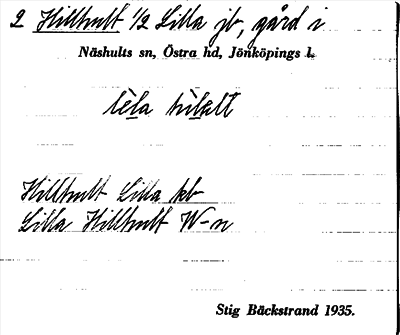 2 Hillhult 1/2 Lilla jb, gård i
Näshults sn, Östra hd, Jönköpings l.
Hillhult Lilla kb
Lilla Hillhult W-n
Stig Bäckstrand 1935.